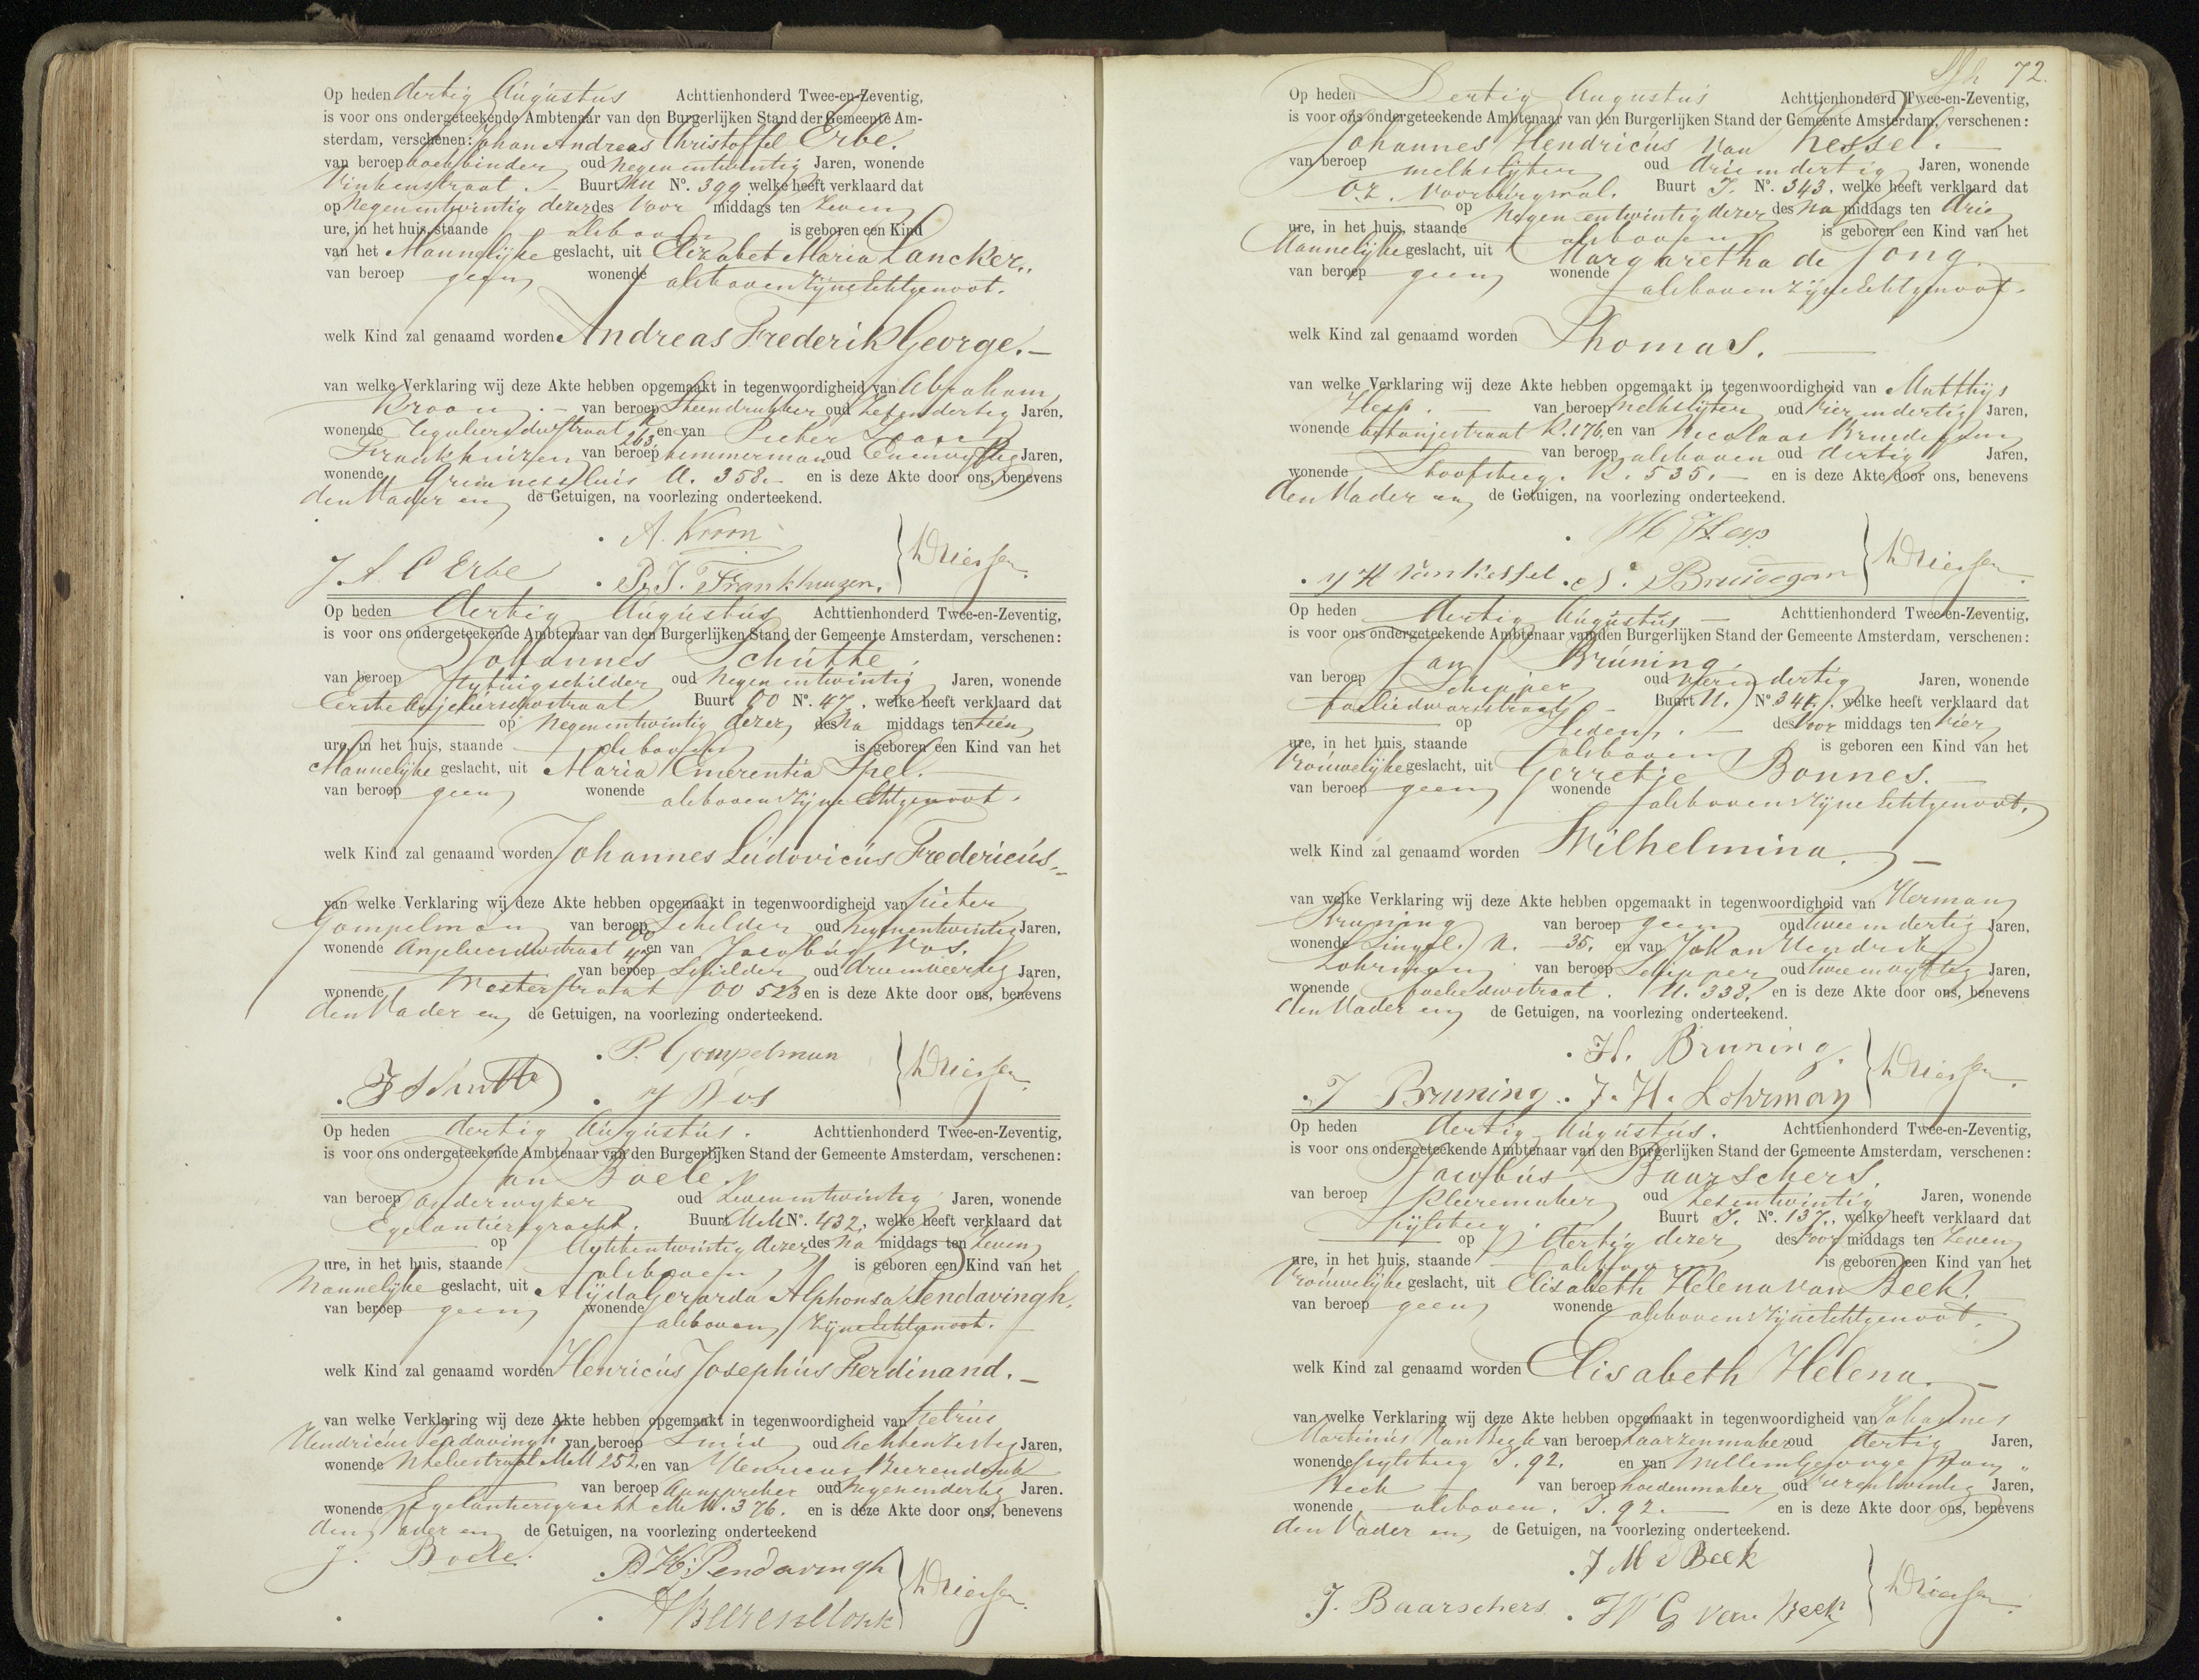 Op heden dertig Augustus Achttienhonderd Twee-en-Zeventig,
is voor ons ondergeteekende Ambtenaar van den Burgerlijken Stand der Gemeente Am-
sterdam, verschenen: Johan Andreas Christoffel Erbe.
van beroep boekbinder oud Negen entwintig Jaren, wonende
Vinkenstraat. Buurt MM No. 399 welke heeft verklaard dat
op Negenentwintig dezer des Voor middags ten Zeven
ure, in het huis, staande alsboven is geboren een Kind
van het Mannelijke geslacht, uit Elizabet Maria Lancker,
van beroep geen wonende alsboven zijne Echtgenoot.
welk Kind zal genaamd worden Andreas Frederik George.
van welke Verklaring wij deze Akte hebben opgemaakt in tegenwoordigheid van Abraham
Kroon van beroep Steendrukker oud Zesendertig Jaren,
wonende Reguliersdwstraat K 263 en van Pieter
Frankhuizen van beroep timmerman oud Eenenvyftig Jaren,
wonende Grimnessluis U. 358. en is deze Akte door ons, benevens
den Vader en de Getuigen, na voorlezing onderteekend.
A. Kroon
J. A. C Erbe P. J. Frankhuizen. Driessen
Op heden dertig Augustus Achttienhonderd Twee-en-Zeventig,
is voor ons ondergeteekende Ambtenaar van den Burgerlijken Stand der Gemeente Amsterdam, verschenen:
Johannes Schútte
van beroep rytuigschilder oud Negen entwintig Jaren, wonende
Eerste Anjeliersdwstraat Buurt OO No. 47, welke heeft verklaard dat
op Negenentwintig dezer des Na middags ten tien
ure, in het huis, staande alsboven is geboren een Kind van het
Mannelijke geslacht, uit Maria Emerentia Spel.
van beroep geen wonende alsboven zijne Echtgenoot.
welk Kind zal genaamd worden Johannes Ludovicus Fredericus
van welke Verklaring wij deze Akte hebben opgemaakt in tegenwoordigheid van Pieter
Gompelman van beroep Schilder oud Negenentwintig Jaren,
wonende Anjeliersdwstraat OO 47 en van Jacobus Vos.
van beroep Schilder oud drieenveertig Jaren,
wonende Westerstraat OO 523 en is deze Akte door ons, benevens
den Vader en de Getuigen, na voorlezing onderteekend.
P. Gompelman
J Schutte J Vos Driessen
Op heden dertig Augustus. Achttienhonderd Twee-en-Zeventig,
is voor ons ondergeteekende Ambtenaar van den Burgerlijken Stand der Gemeente Amsterdam, verschenen:
Jan Boele.
van beroep onderwyzer oud Zevenentwintig Jaren, wonende
Egelantiersgracht. Buurt MM No. 432, welke heeft verklaard dat
op Achtentwintig dezer des Na middags ten Zeven
ure, in het huis, staande alsboven is geboren een Kind van het
Mannelijke geslacht, uit Alijda Gerarda Alphonsa Pendavingh,
van beroep geen wonende alsboven zijne Echtgenoot.
welk Kind zal genaamd worden Henricus Josephus Ferdinand.
van welke Verklaring wij deze Akte hebben opgemaakt in tegenwoordigheid van Petrus
Hendricus Pendavingh van beroep Smid oud Achtenzestig Jaren,
wonende MM 252. en van Henricus Beerendonk
van beroep Aanspreker oud Negenendertig Jaren.
wonende Egelantiersgracht MM. 376. en is deze Akte door ons, benevens
den Vader en de Getuigen, na voorlezing onderteekend
J. Boele. P H: Pendavingh
H Beerendonk Driessen
72.
Op heden Dertig Augustus Achttienhonderd Twee-en-Zeventig,
is voor ons ondergeteekende Ambtenaar van den Burgerlijken Stand der Gemeente Amsterdam, verschenen:
Johannes Hendricus van Kessel.
van beroep melkslijter oud drieendertig Jaren, wonende
O.Z. Voorburgwal. Buurt J. No. 343, welke heeft verklaard dat
op Negen entwintig dezer des Na middags ten drie
ure, in het huis, staande alsboven is geboren een Kind van het
Mannelijke geslacht, uit Margaretha de Jong.
van beroep geen wonende alsboven zijne Echtgenoot.
welk Kind zal genaamd worden Thomas.
van welke Verklaring wij deze Akte hebben opgemaakt in tegenwoordigheid van Matthijs
Hesp. van beroep melkslijter oud Vierendertig Jaren,
wonende Batanjestraat K. 176. en van Nicolaas Bruidegom
van beroep alsboven oud dertig Jaren,
wonende Stoofsteeg. K. 535. en is deze Akte door ons, benevens
den Vader en de Getuigen, na voorlezing onderteekend.
M Hesp
J H van Kessel N. Bruidegom Driessen
Op heden dertig Augustus Achttienhonderd Twee-en-Zeventig,
is voor ons ondergeteekende Ambtenaar van den Burgerlijken Stand der Gemeente Amsterdam, verschenen:
Jan Brúning.
van beroep Schipper oud Vierendertig Jaren, wonende
Foeliedwarsstraat Buurt U. No. 341, welke heeft verklaard dat
op Heden. des Voor middags ten Vier
ure, in het huis, staande alsboven is geboren een Kind van het
Vrouwelijke geslacht, uit Gerretje Bonnes.
van beroep geen wonende alsboven zijne Echtgenoot.
welk Kind zal genaamd worden Wilhelmina.
van welke Verklaring wij deze Akte hebben opgemaakt in tegenwoordigheid van Herman
Bruning van beroep geen oud tweeendertig Jaren,
wonende Singel. N. 35. en van Johan Hendrik
Lohrman van beroep Schipper oud tweeenvyftig Jaren,
wonende Foeliedwstraat. U. 338. en is deze Akte door ons, benevens
den Vader en de Getuigen, na voorlezing onderteekend.
H. Bruning.
J Bruning. J. H. Lohrman Driessen
Op heden dertig Augustus. Achttienhonderd Twee-en-Zeventig,
is voor ons ondergeteekende Ambtenaar van den Burgerlijken Stand der Gemeente Amsterdam, verschenen:
Jacobus Baarschers.
van beroep Kleermaker oud Zesentwintig Jaren, wonende
Pijlsteeg. Buurt J. No. 137., welke heeft verklaard dat
op dertig dezer des Voor middags ten Zeven
ure, in het huis, staande alsboven is geboren een Kind van het
Vrouwelijke geslacht, uit Elisabeth Helena van Beek.
van beroep geen wonende alsboven zijne Echtgenoot.
welk Kind zal genaamd worden Elisabeth Helena.
van welke Verklaring wij deze Akte hebben opgemaakt in tegenwoordigheid van Johannes
Martinus van Beek van beroep Laarzenmaker oud dertig Jaren,
wonende Pylsteeg J. 92. en van Willem George van
Beek van beroep hoedenmaker oud Vierentwintig Jaren,
wonende alsboven. J. 92. en is deze Akte door ons, benevens
den Vader en de Getuigen, na voorlezing onderteekend.
J M v Beek
J. Baarschers W G van Beek Driessen